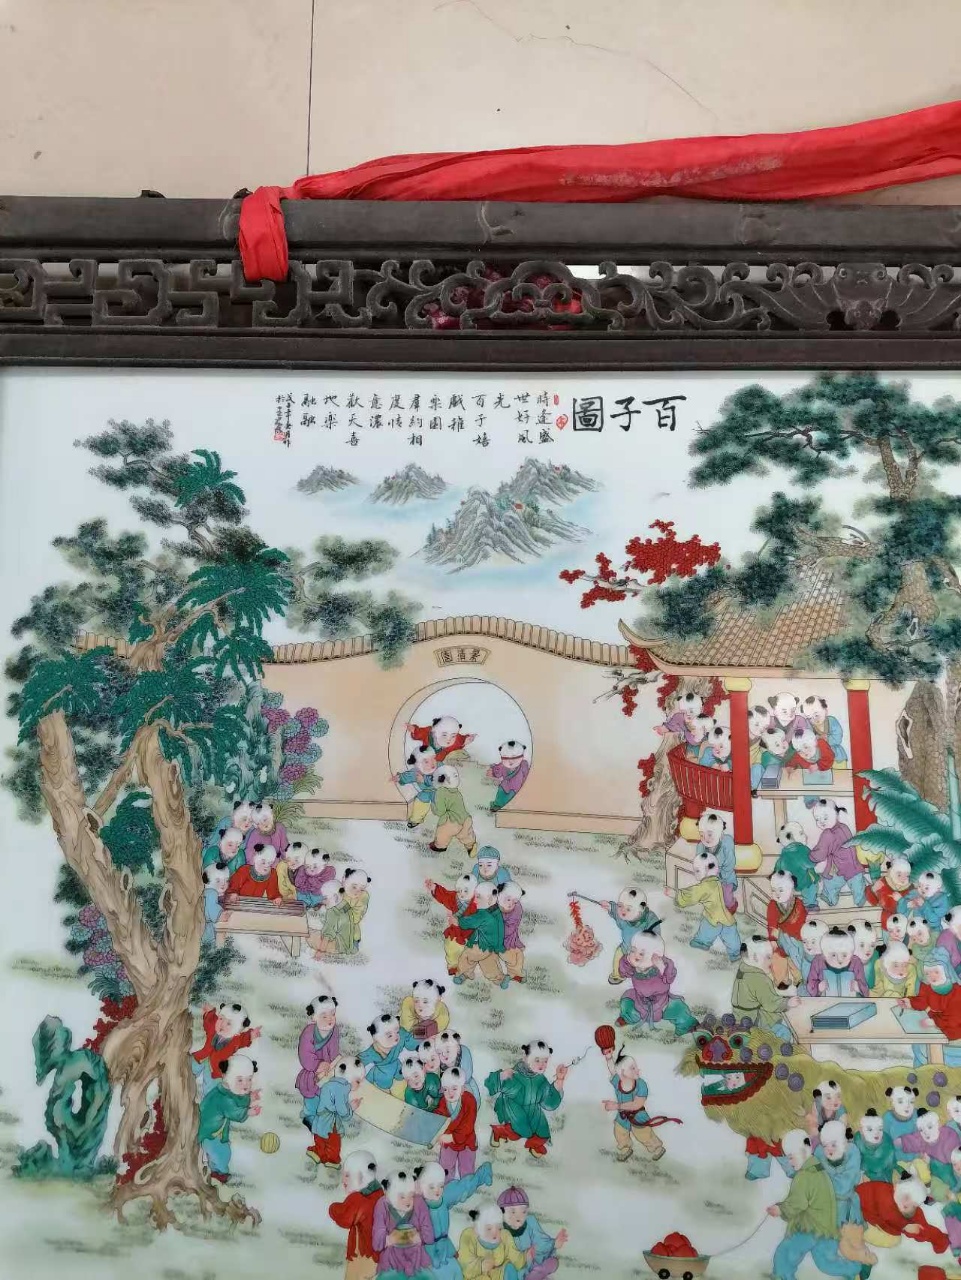 百子圖
時逢盛
世好風
光
百子嬉
戲稚
樂園
羣約相
度情
意濃
歡天喜
地樂
融融